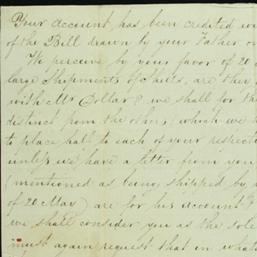 Your account, has been credited
of the Bill drawn by your Father
We perceive by your favor of 20
large Shipments of are
with Mr Dollar & we shall for
distinct from the which we
to place half to each of your
unless we have a letter from you
(mentioned as being shipped by
of 20 May) are for his account
we shall consider you as the sole
must again request that in